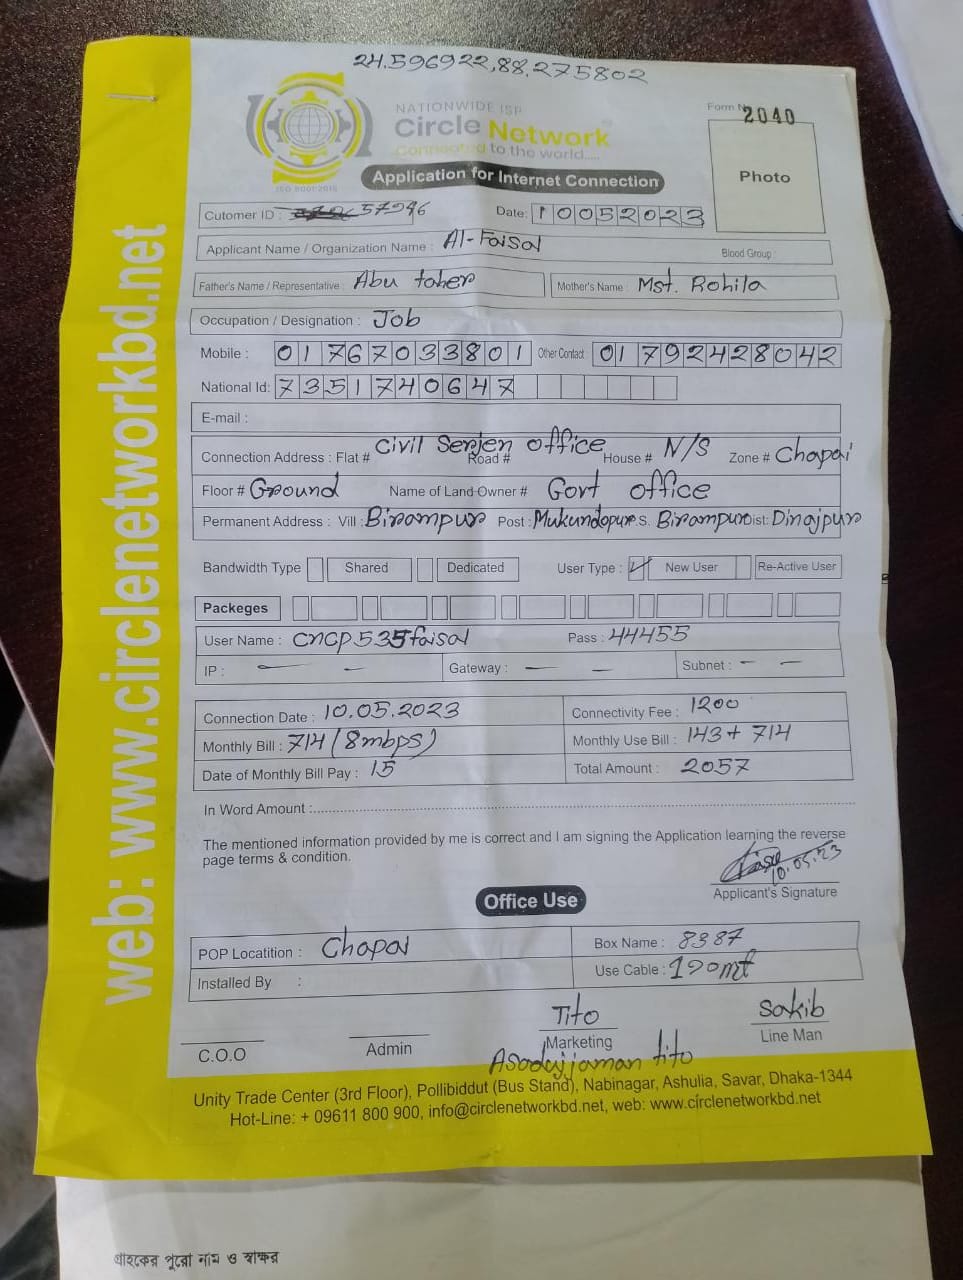 24.596922,88.275802
NATIONWIDE ISP
Circle Network
Connected to the world.....
ISO 9001:2015
Form No 2040
Photo
Application for Internet Connection
Cutomer ID : 57946 Date: 10052023
Applicant Name / Organization Name : Al-Faisal Blood Group :
Father's Name / Representative : Abu taher Mother's Name : Mst. Rohila
Occupation / Designation : Job
Mobile : 01767033801 Other Contact 01792428042
National Id: 7351740647
E-mail :
Connection Address : Flat # Civil Serjen office Road # House # N/S Zone # Chapai
Floor # Ground Name of Land Owner # Govt office
Permanent Address : Vill : Birampur Post : Mukundopur P.S. Birampur Dist: Dinajpur
Bandwidth Type Shared Dedicated User Type : New User Re-Active User
Packeges
User Name : cncp535faisal Pass : 44455
IP : — — Gateway : — — Subnet : — —
Connection Date : 10.05.2023 Connectivity Fee : 1200
Monthly Bill : 714 (8mbps) Monthly Use Bill : 143+ 714
Date of Monthly Bill Pay : 15 Total Amount : 2057
In Word Amount :
The mentioned information provided by me is correct and I am signing the Application learning the reverse
page terms & condition.
10.05.23
Applicant's Signature
Office Use
POP Locatition : Chapai Box Name : 8387
Installed By : Use Cable : 190mt
Tito Sakib
C.O.O Admin Marketing Line Man
Asadujjaman tito
Unity Trade Center (3rd Floor), Pollibiddut (Bus Stand), Nabinagar, Ashulia, Savar, Dhaka-1344
Hot-Line: + 09611 800 900, info@circlenetworkbd.net, web: www.circlenetworkbd.net
web: www.circlenetworkbd.net
গ্রাহকের পুরো নাম ও স্বাক্ষর